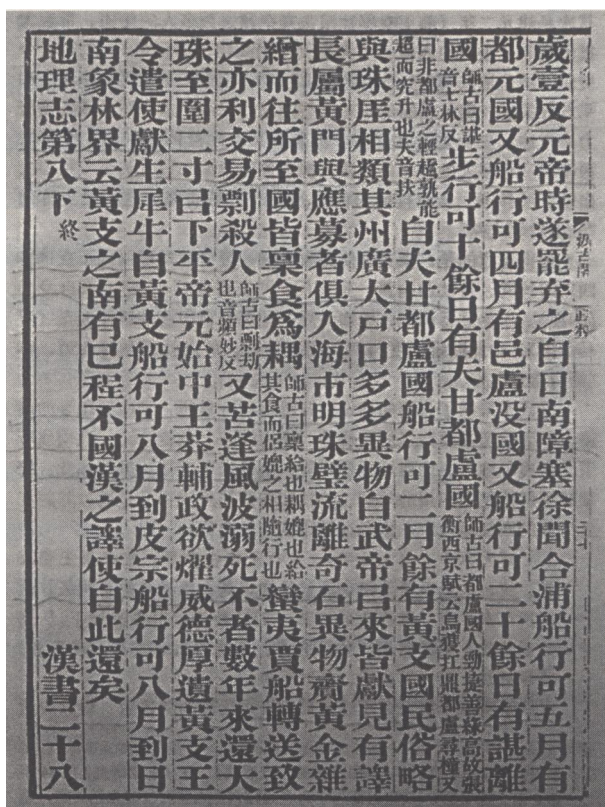 歲壹反元帝時遂罷弃之自日南障塞徐聞合浦船行可五月有
都元國又船行可四月有邑盧没國又船行可二十餘日有諶離
國師古曰諶音士林反步行可十餘日有夫甘都盧國師古曰都盧國人勁捷善緣高故張衡西京賦云烏獲扛鼎都盧尋橦又
曰非都盧之輕趫孰能超而究升也夫音扶自夫甘都盧國船行可二月餘有黃支國民俗略
與珠厓相類其州廣大戶口多多異物自武帝已來皆獻見有譯
長屬黃門與應募者俱入海市明珠璧流離奇石異物齎黃金雜
繒而往所至國皆稟食爲耦師古曰稟給也耦媲也給其食而侶媲之相隨行也蠻夷賈船轉送致
之亦利交易剽殺人師古曰剽劫也音頻妙反又苦逢風波溺死不者數年來還大
珠至圍二寸已下平帝元始中王莽輔政欲燿威德厚遺黃支王
令遣使獻生犀牛自黃支船行可八月到皮宗船行可八月到日
南象林界云黃支之南有已程不國漢之譯使自此還矣
地理志第八下 終 漢書二十八
汲古閣